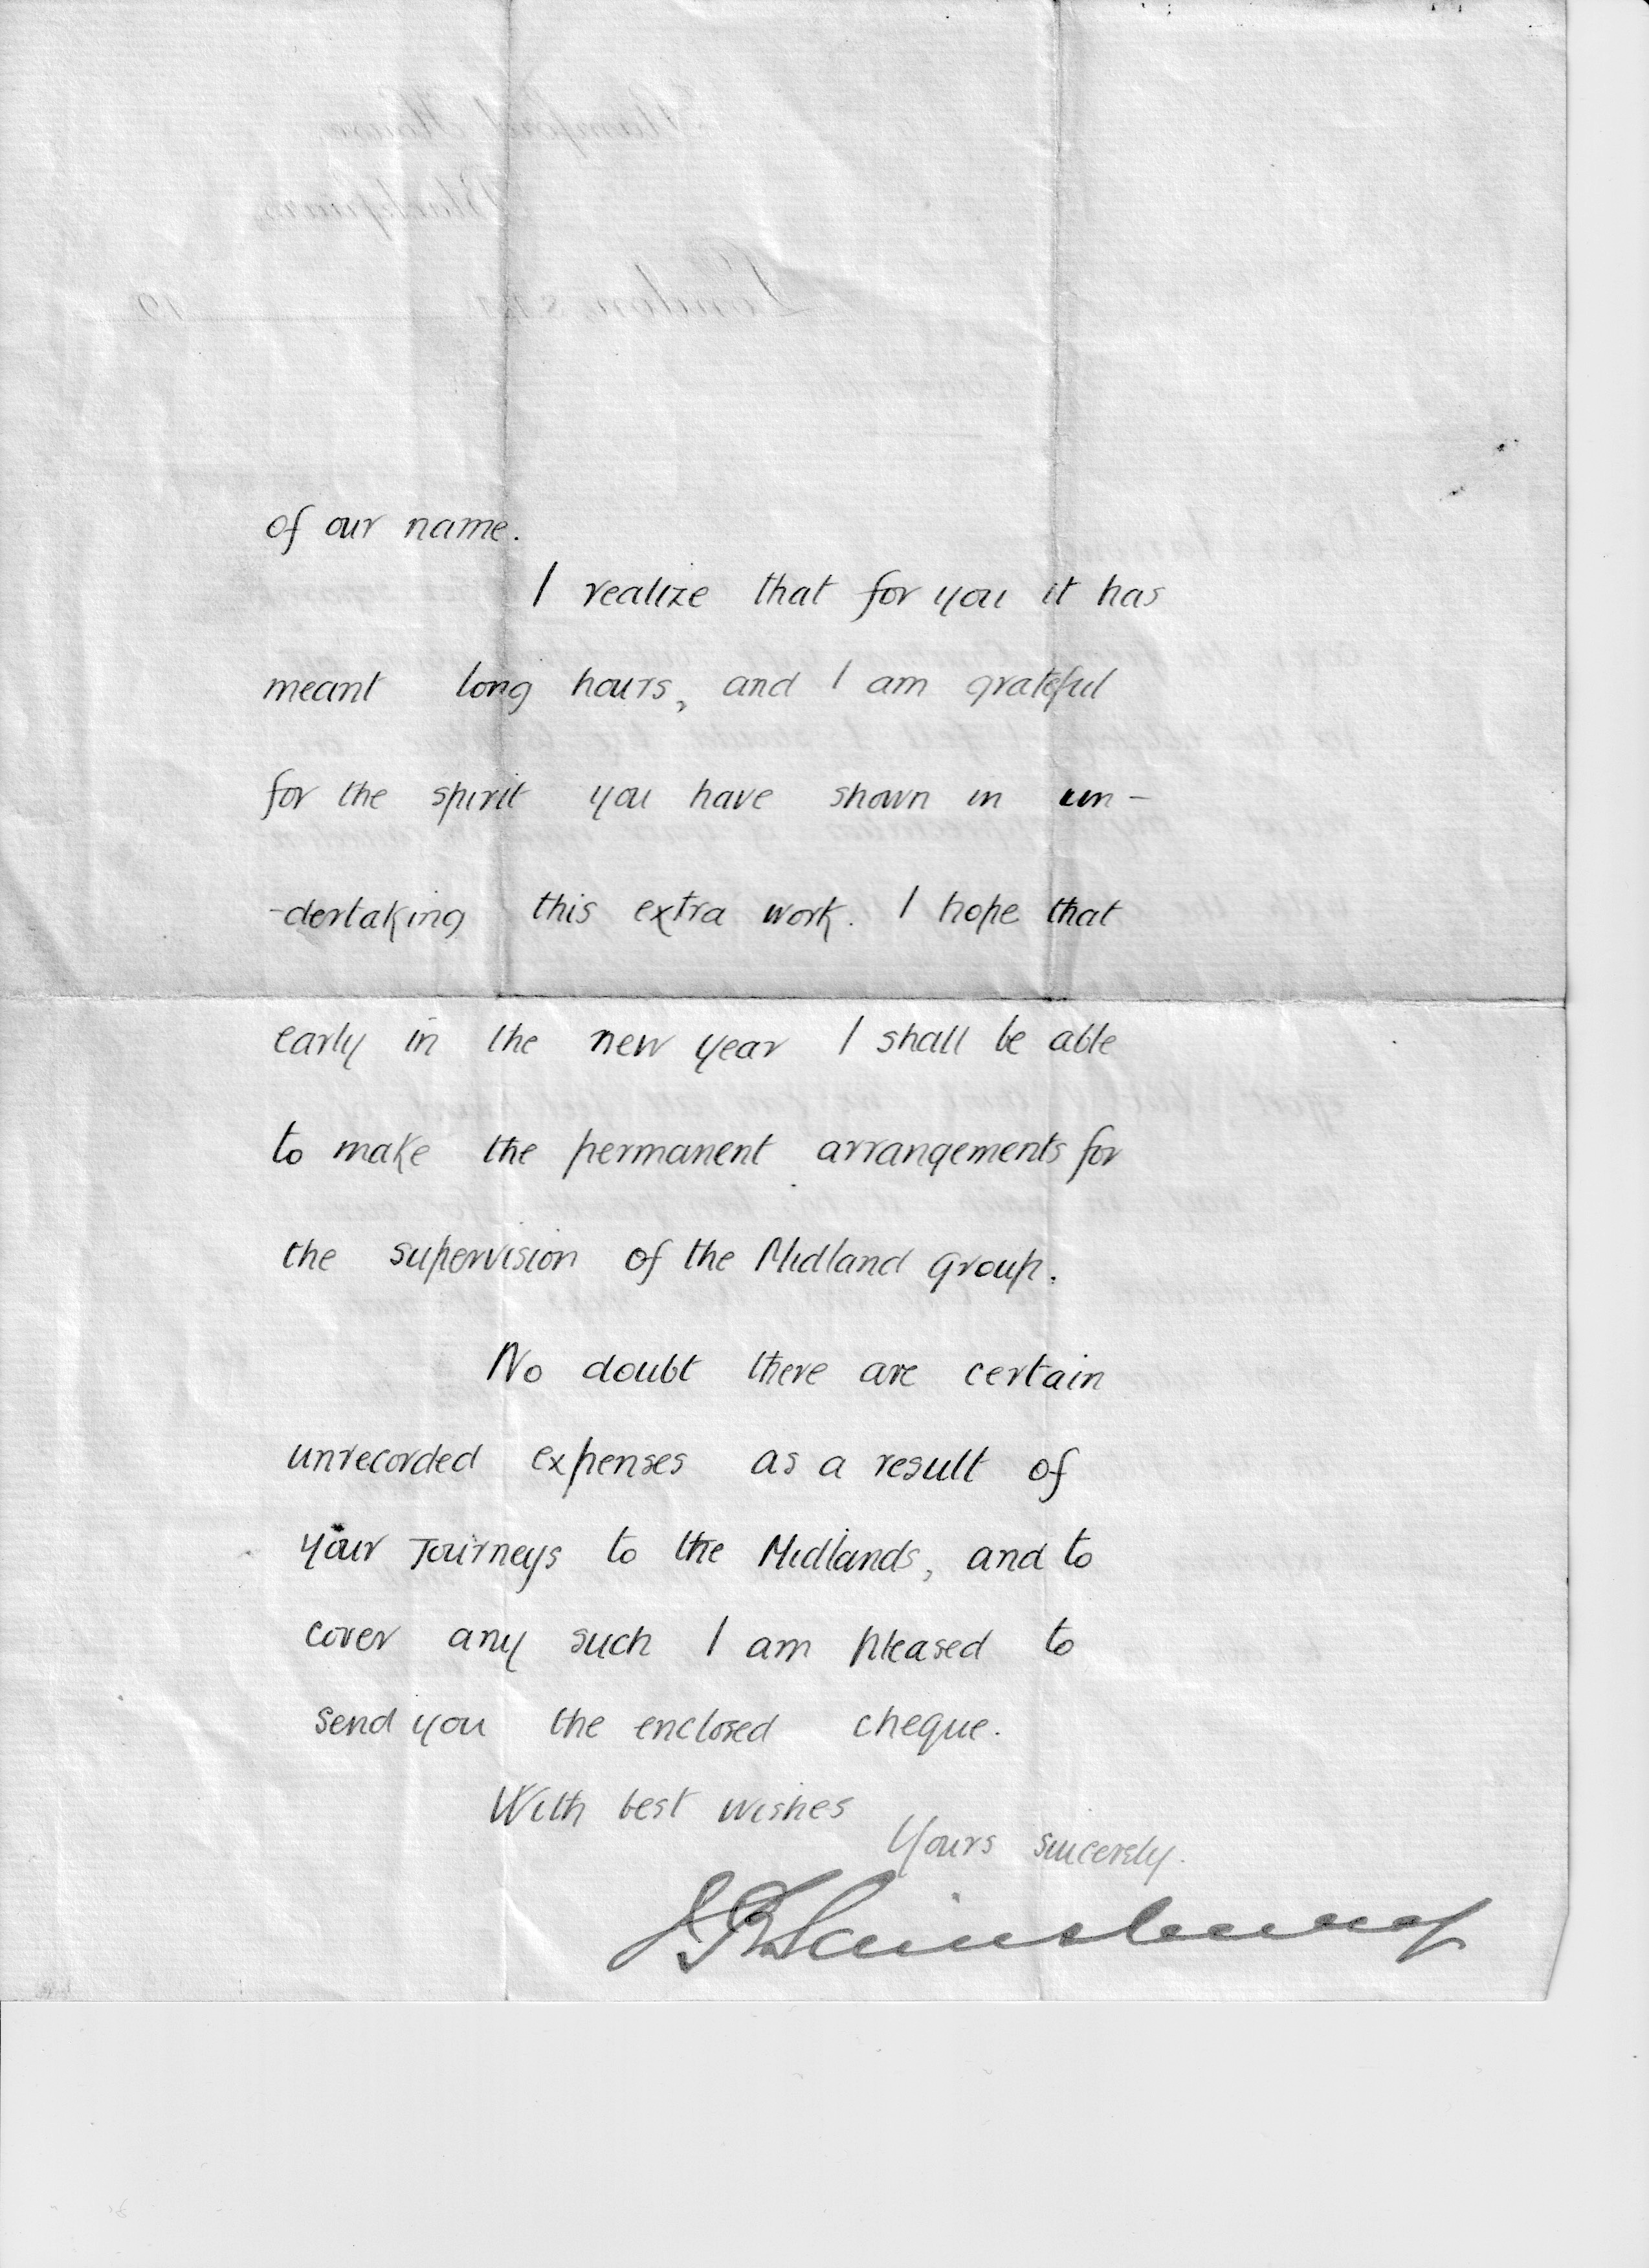 of our name.
I realize that for you it has
meant long hours, and I am grateful
for the spirit you have shown in un-
-dertaking this extra work. I hope that
early in the new year I shall be able
to make the permanent arrangements for
the supervision of the Midland group.
No doubt there are certain
unrecorded expenses as a result of
your Journeys to the Midlands, and to
cover any such I am pleased to
send you the enclosed cheque.
With best wishes
Yours sincerely.
J B Sainsbury